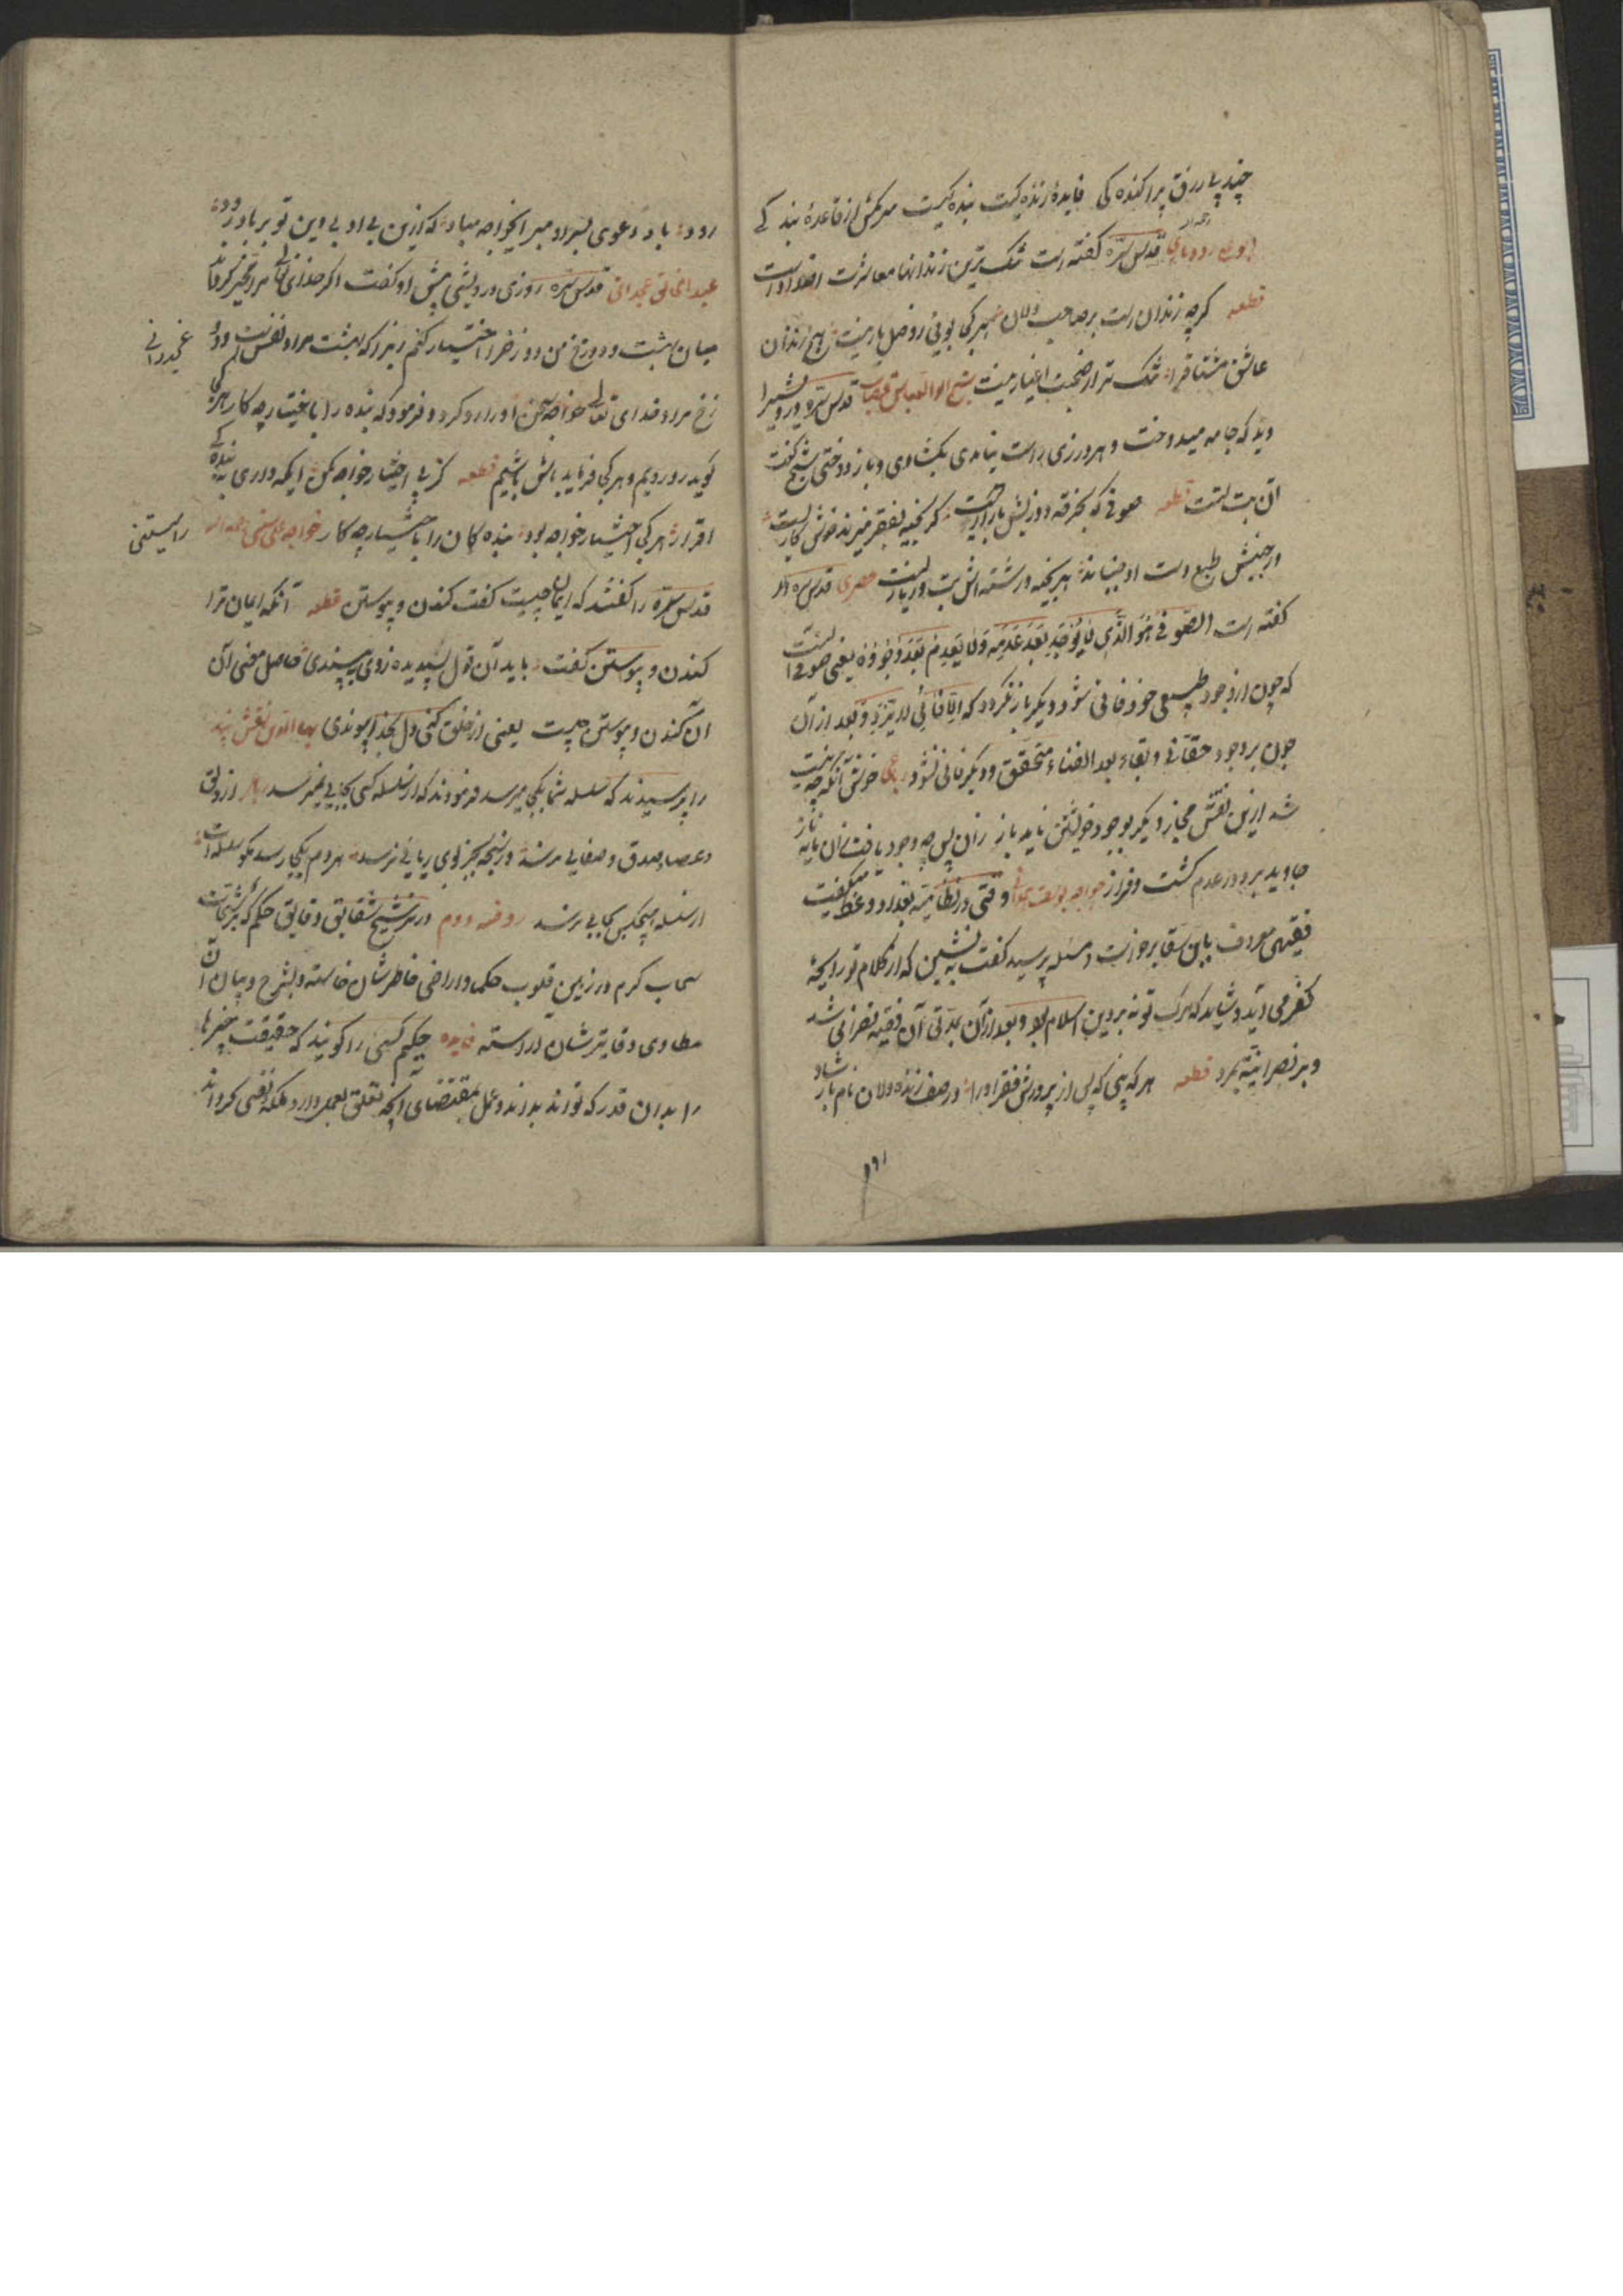 چند پی رزق پراکنده کی فایدهٔ زنده کیست بنده کیست سرمکش از قاعدهٔ بند کے
قدس سره کفته است تنک ترین زندانها معاشرت اضداد است
قطعه کرچه زندان است بر صاحب دلان هر کجا بویی ز وصل یار نیست هیچ زندان
عاشق مشتاق را تنک تر از صحبت اغیار نیست شیخ ابو العباس قصاب قدس سره درویشی را
دید که جامه میدوخت و هر درزی راست نیامدی بکشادی و باز دوختی شیخ کفت
آن بت تست قطعه صوفی که بخرقه دوزیش بازاریست کر بخیه بفقر میزند خوش کاریست
ور جنبش طبع دست او جنباند هر بخیه و رشته اش بت و زناریست حصری قدس سره
کفته است الصوفی هو الذی لا یوجد بعد عدمه و لا یعدم بعد وجوده یعنی صوفی آنست
که چون از وجود طبیعی خود فانی شود دیکر باز نکردد که الفانی لا یرد و بعد از آن
چون بر وجود حقانی و بقاء بعد الفناء متحقق دیکر فانی نشود رباعی خوش آنکه چو نیست
شد ازین نقش مجاز دیکر بوجود خویشتن ناید باز زان پس چو وجود یافت زان مایهٔ ناز
جاوید برو در عدم کشت فراز خواجه یوسف همدانی وقتی در نظامیه بغداد وعظ میکفت
فقیهی معروف بابن سقا برخاست و مسئله پرسید کفت بنشین که از کلام تو رایحهٔ
کفر می آید و شاید که مرک تو نه بر دین اسلام بود و بعد از آن بمدتی آن فقیه نصرانی شد
و بر نصرانیت بمرد قطعه هر که بینی که پس از پرورش فقر او را در صف زنده دلان نام
۱۹۱
رود باد دعوی بسر او مبر ای خواجه مباد که ازین بی ادبی دین تو بر باد رود
عبد الخالق غجدوانی قدس سره روزی درویشی پیش او کفت اکر خدای تعالی مرا مخیر کرداند
غجدوانی
میان بهشت و دوزخ من دوزخ را اختیار کنم زیرا که بهشت مراد نفس است و دو
زخ مراد خدای تعالی خواجه سخن او را رد کرد و فرمود که بنده را باختیار چه کار هر کجا
کوید رو رویم و هر کجا فرماید باش باشیم قطعه کز بی اختیار خواجه مکن ایکه داری به بنده کے
اقرار هر کجا اختیار خواجه بود بنده کان را باختیار چه کار خواجه علی رامیتنی
رامیتنی
قدس سره را کفتند که ایمان چیست کفت کندن و پیوستن قطعه آنکه ایمان ترا
کندن و پیوستن کفت باید آن قول پسندیده ز وی بپسندی حاصل معنی آن
آن کندن و پیوستن چیست یعنی از خلق کنی دل بخدا پیوندی بهاء الدین نقشبند
را پرسیدند که سلسله شما بکجا میرسد فرمودند که از سلسله کسی بجایی نمیرسد از دلق
و عصا صدق و صفایی نرسد در سبحه بجز بوی ریایی نرسد هر دم بکجا رسد مکو سلسله ات
از سلسله هیچکس بجایی نرسد روضه دوم در ترشیح شقایق دقایق حکم که برشحات
سحاب کرم در زمین قلوب حکما و اراضی خاطرشان خاسته و بشرح و بیان آن
مطاوی دفاترشان آراسته فایده حکیم کسی را کویند که حقیقت چیزها
را بدان قدر که تواند بداند و عمل بمقتضای آنچه تعلق بعمل دارد ملکه نفسی کرداند